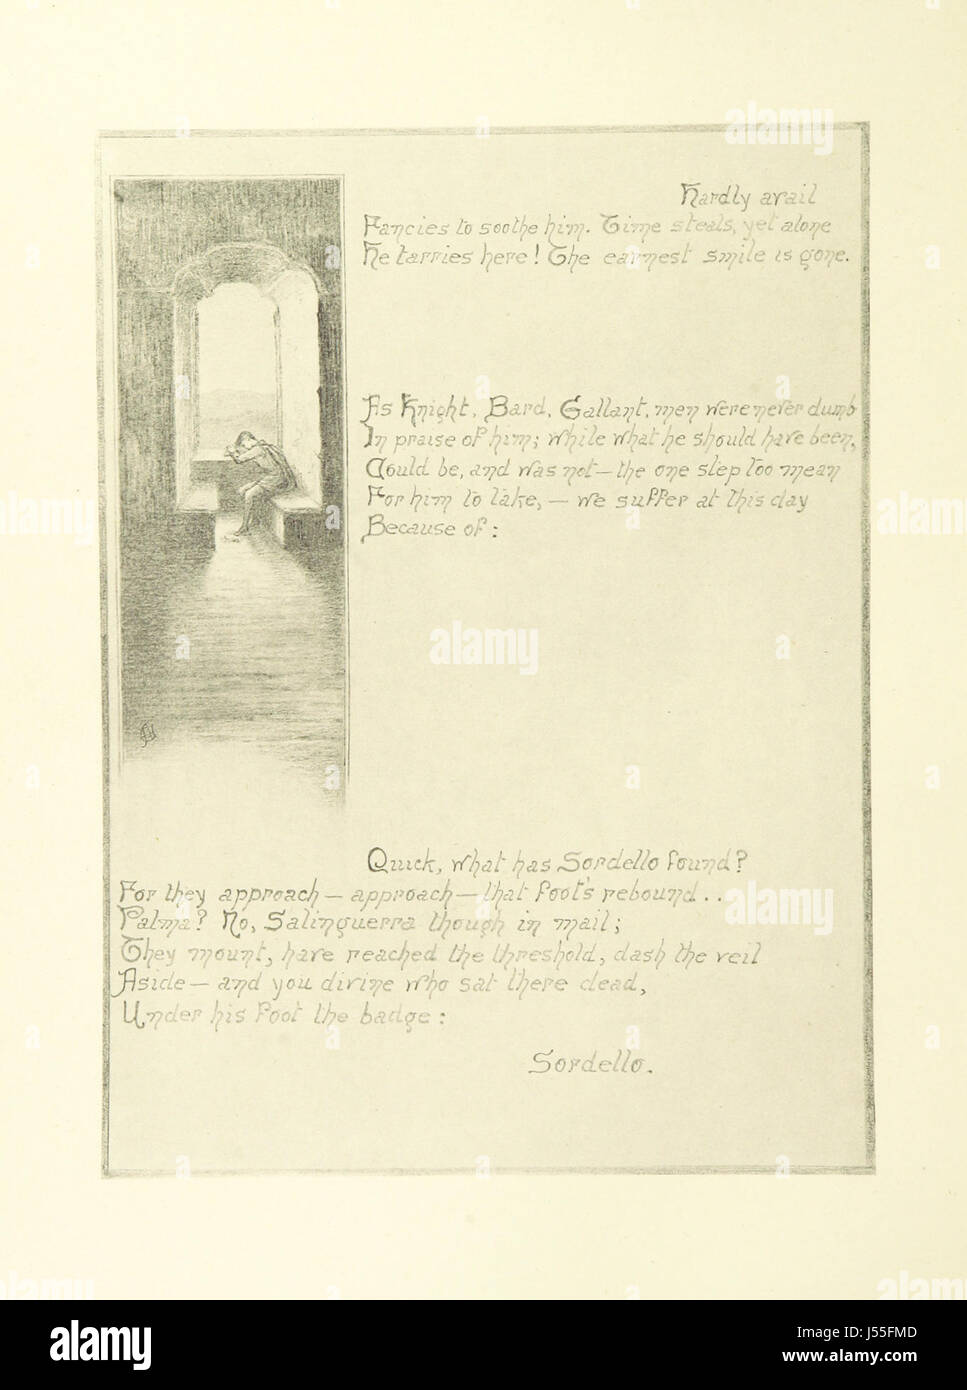 Hardly avail
Fancies to soothe him. Time steals, yet alone
He tarries here! The earnest smile is gone.
As Knight, Bard, Gallant, men were never dumb
In praise of him; while what he should have been,
Could be, and was not — the one step too mean
For him to take, — we suffer at this day
Because of:
Quick, what has Sordello found?
For they approach — approach — that foot's rebound..
Palma? No, Salinguerra though in mail;
They mount, have reached the threshold, dash the veil
Aside — and you divine who sat there dead,
Under his foot the badge:
Sordello.
alamy
alamy
alamy
alamy
alamy
alamy
alamy
alamy
alamy
alamy
Image ID: J55FMD
www.alamy.com